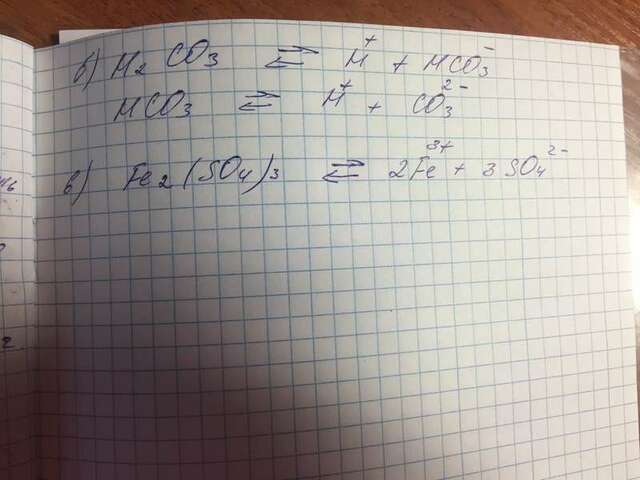 б) H₂CO₃ ⇄ H⁺ + HCO₃⁻
HCO₃ ⇄ H⁺ + CO₃²⁻
в) Fe₂(SO₄)₃ ⇄ 2Fe³⁺ + 3SO₄²⁻